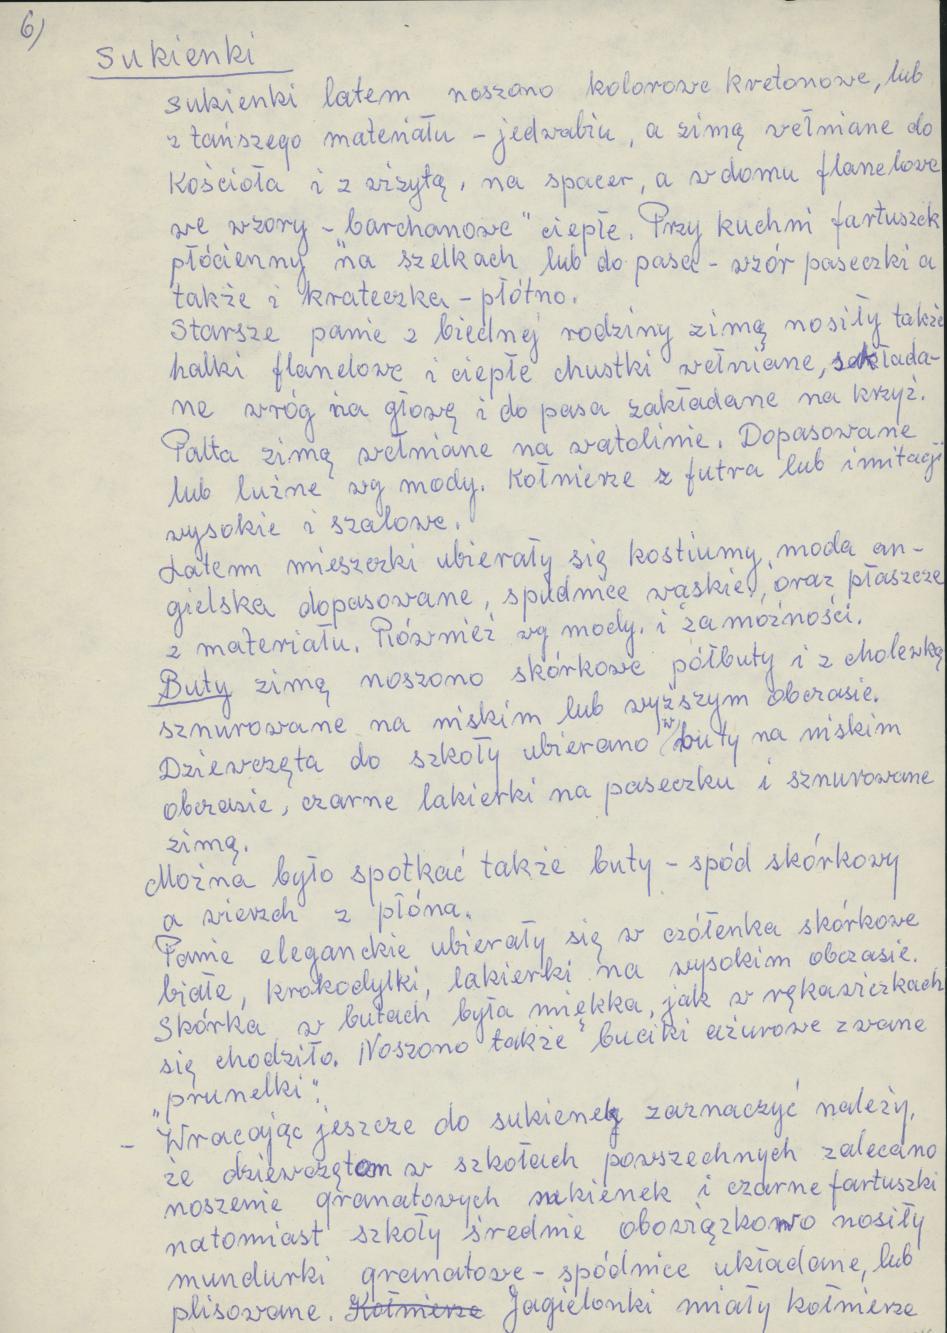 6)
Sukienki
Sukienki latem noszono kolorowe kretonowe, lub
z tańszego materiału – jedwabiu, a zimą wełniane do
Kościoła i z wizytą, na spacer, a w domu flanelowe
we wzory – barchanowe" ciepłe. Przy kuchni fartuszek
płócienny "na szelkach lub do pasa – wzór paseczki a
także i krateczka – płótno.
Starsze panie z biednej rodziny zimą nosiły także
halki flanelowe i ciepłe chustki wełniane, składa-
ne wróg na głowę i do pasa zakładane na krzyż.
Palta zimą wełniane na watolinie. Dopasowane
lub luźne wg mody. Kołnierze z futra lub imitacji
wysokie i szalowe.
Latem mieszczki ubierały się kostiumy, moda an-
gielska dopasowane, spódnice wąskie, oraz płaszcze
z materiału. Również wg mody. i zamożności.
Buty zimą noszono skórkowe półbuty i z cholewką
sznurowane na niskim lub wyższym obcasie.
Dziewczęta do szkoły ubierano w buty na niskim
obcasie, czarne lakierki na paseczku i sznurowane
zimą.
Można było spotkać także buty – spód skórkowy
a wierzch z płóna.
Panie eleganckie ubierały się w czółenka skórkowe
białe, krokodylki, lakierki na wysokim obcasie.
Skórka w butach była miękka, jak w rękawiczkach
się chodziło. Noszono także buciki ażurowe zwane
"prunelki".
– Wracając jeszcze do sukienek zaznaczyć należy,
że dziewczętom w szkołach powszechnych zalecano
noszenie granatowych sukienek i czarne fartuszki
natomiast szkoły średnie obowiązkowo nosiły
mundurki granatowe – spódnice układane, lub
plisowane. Kołnierze Jagielonki miały kołnierze